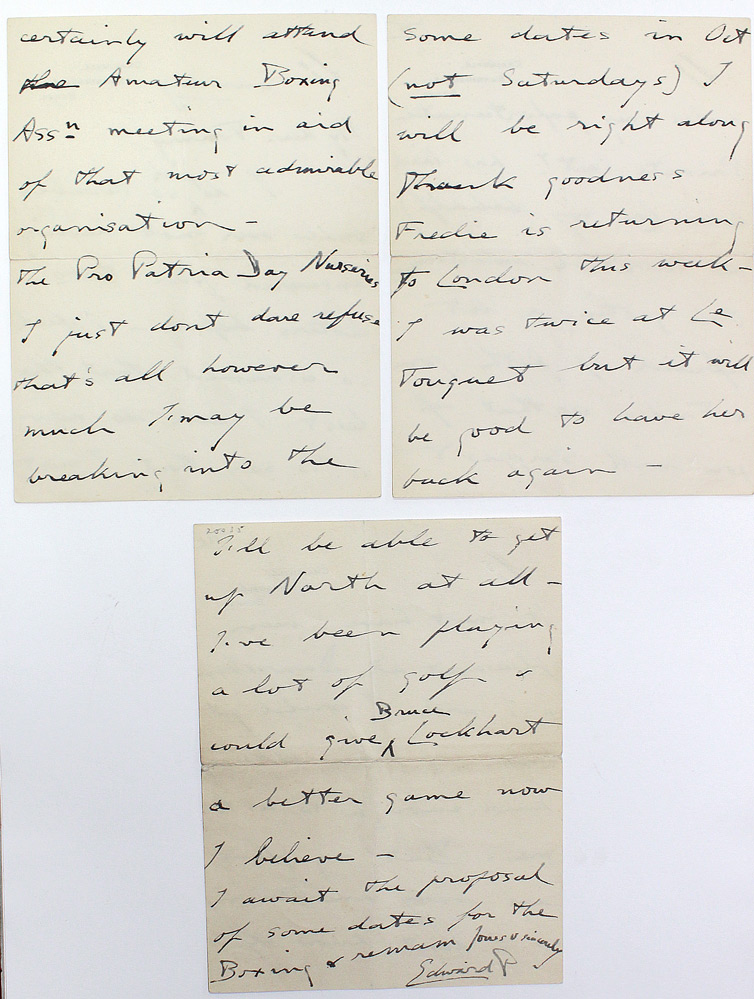 certainly will attend
the Amateur Boxing
Assn meeting in aid
of that most admirable
organisation —
the Pro Patria Day Nurseries
I just dont dare refuse
that's all however
much I may be
breaking into the
some dates in Oct
(not Saturdays) I
will be right along
Thank goodness
Fredie is returning
to London this week —
I was twice at Le
Touquet but it will
be good to have her
back again —
I'll be able to get
up North at all —
I've been playing
a lot of golf &
Bruce
could give Lockhart
a better game now
I believe —
I await the proposal
of some dates for the
Boxing & remain Yours v sincerely
Edward P